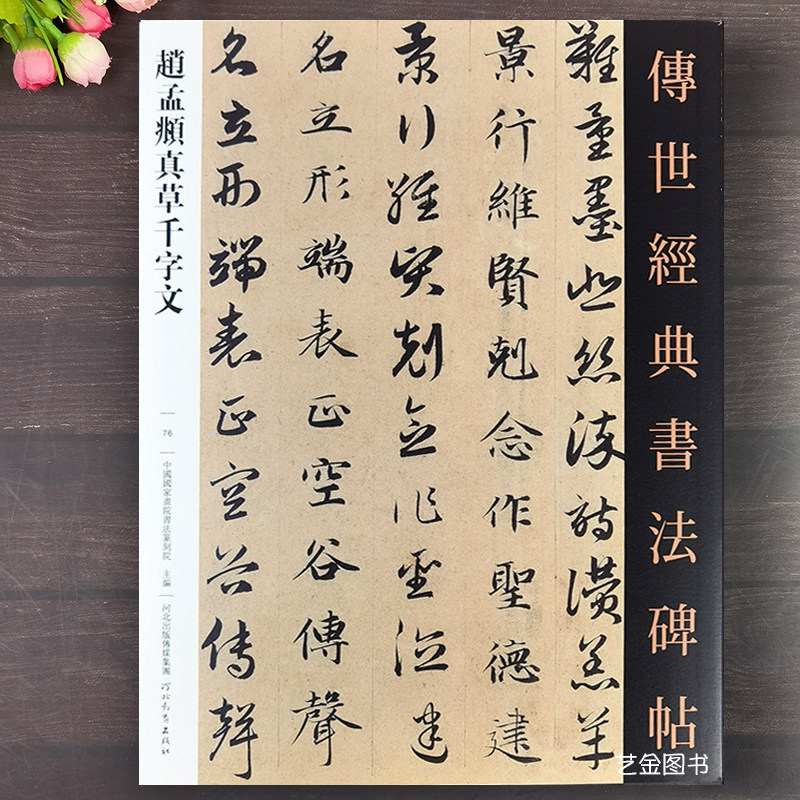 傳世經典書法碑帖
難量墨悲絲染詩讚羔羊
景行維賢剋念作聖德建
景行維賢剋念作聖德建
名立形端表正空谷傳聲
名立形端表正空谷傳聲
趙孟頫真草千字文
76
中國國家畫院書法篆刻院 主編
河北出版傳媒集團
河北教育出版社
艺金图书